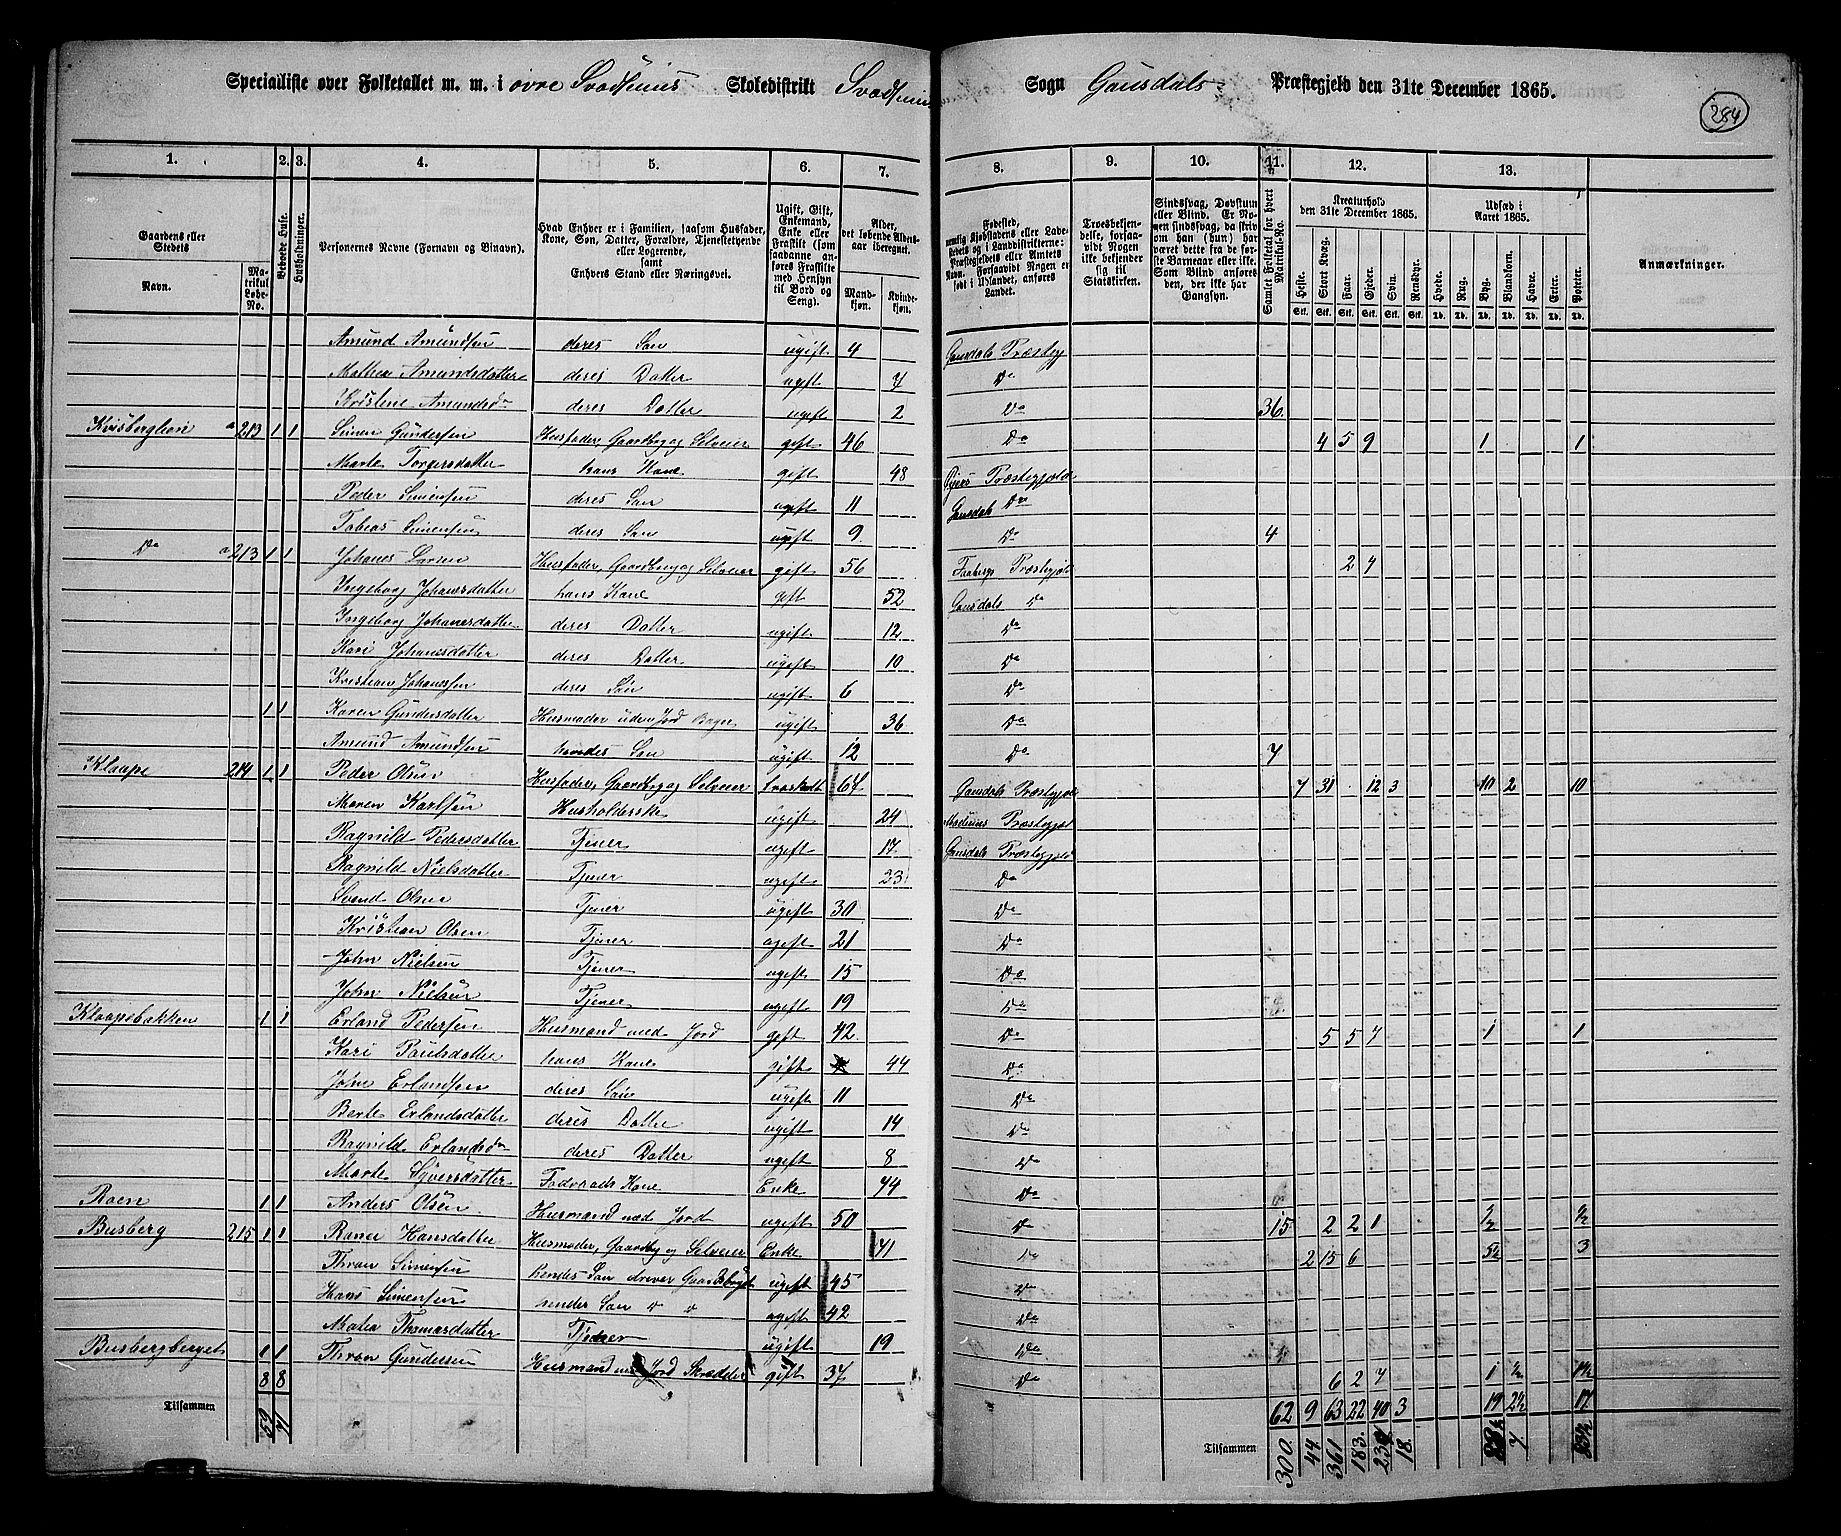 Specialliste over Folketallet m. m. i øvre Svadsums Skoledistrikt Svadsums Sogn Gausdals Præstegjeld den 31te December 1865.
284
1. 2. 3. 4. 5. 6. 7. 8. 9. 10. 11. 12. 13.
Gaardens eller Stedets Navn. Matrikul Løbe-No. Beboede Huse. Husholdninger. Personernes Navne (Fornavn og Binavn). Hvad Enhver er i Familien, saasom Husfader, Kone, Søn, Datter, Forældre, Tjenestetyende eller Logerende, samt Enhvers Stand eller Næringsvei. Ugift, Gift, Enkemand, Enke eller Fraskilt (som saadanne anføres Fraskilte med Hensyn til Bord og Seng). Alder, det løbende Aldersaar iberegnet. Mandkjøn. Kvindekjøn.
Fødested, nemlig Kjøbstadens eller Ladestedets og i Landdistrikterne: Præstegjeldets eller Amtets Navn. Forsaavidt Nogen er født i Udlandet, anføres Landet. Troesbekjendelse, forsaavidt Nogen ikke bekjender sig til Statskirken. Sindssvag, Døvstum eller Blind. Samlet Folketal for hvert Matrikul-No. Kreaturhold den 31te December 1865. Heste. Stort Kvæg. Faar. Gjeder. Svin. Rensdyr. Udsæd i Aaret 1865. Hvede. Rug. Byg. Blandkorn. Havre. Erter. Poteter. Anmærkninger.
Amund Amundsen deres Søn ugift 4 Gausdals Præstegj
Mathea Amundsdatter deres Datter ugift 7 Do
Kristene Amundsdr deres Datter ugift 2 Do 36
Kvisberglien a 213 1 1 Simen Gundersen Husfader Gaardbr og Selveier gift 46 Do 4 5 9 1 1
Marte Torgersdatter hans Kone gift 48 Øyers Præstegjeld
Peder Simensen deres Søn ugift 11 Gausdals Do
Tobias Simensen deres Søn ugift 9 Do 4
Do a 213 1 1 Johanes Husfader, Gaardbrug og Selveier gift 56 Faabergs Præstegjeld 2 4
Ingeborg Johanesdatter hans Kone gift 52 Gausdals Do
Ingeborg Johanesdatter deres Datter ugift 12 Do
Kari Johanesdatter deres Datter ugift 10 Do
Kristian Johanessen deres Søn ugift 6 Do
1 1 Karen Gundersdatter Husmoder uden Jord ugift 36 Do
Amund Amundsen hendes Søn ugift 12 Do 7
Klaape 214 1 1 Peder Olsen Husfader, Gaardbrug og Selveier fraskilt 64 Gausdals Præstegjeld 7 31 12 3 10 2 10
Maren Karlsen Husholderske ugift 24 Præstegjel
Ragnild Pedersdatter Tjener ugift 17 Gausdals Præstegjeld
Ragnild Nielsdatter Tjener ugift 23 Do
Svend Olsen Tjener ugift 30 Do
Kristian Olsen Tjener ugift 21 Do
John Nielsen Tjener ugift 15 Do
Johan Nielsen Tjener ugift 19 Do
Klaapebakken 1 1 Erland Pedersen Husmand med Jord gift 42 Do 5 5 7 1 1
Kari Paulsdatter hans Kone gift 44 Do
John Erlandsen deres Søn ugift 11 Do
Berte Erlandsdatter deres Datter ugift 14 Do
Ragnild Erlandsdr deres Datter ugift 8 Do
Marte Syversdatter Føderaads Kone Enke 74 Do
Roen 1 1 Anders Olsen Husmand med Jord ugift 50 Do 15 2 2 1 1/2
Busberg 215 1 1 Hansdatter Husmoder, Gaardbr og Selveier Enke 71 Do 2 15 6 5 1/2 3
Thron Simensen hendes Søn driver Gaardsbruget ugift 45 Do
Hans Simensen hendes Søn Do Do ugift 42 Do
Mathea Thomasdatter Tjener ugift 19 Do
Busbergberget 1 1 Thron Gundersen Husmand med Jord Skrædder gift 37 Do 6 2 7 1 1/2 1 1/2
8 8
Tilsammen 59 71
62 9 63 22 40 3 19 2 1/2 17
Tilsammen 300 44 361 183 18 7